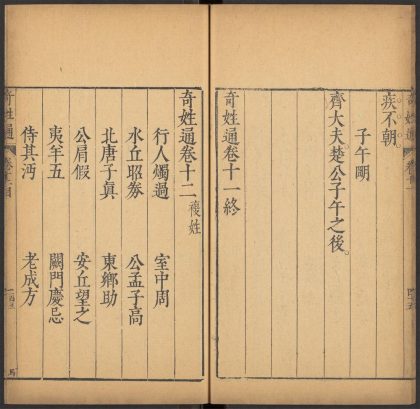 疾不朝。
子午明
齊大夫楚公子午之後。
奇姓通卷十一終
奇姓通卷十二 複姓
行人燭過 室中周
水丘昭券 公孟子高
北唐子真 東鄉助
公肩假 安丘望之
夷羊五 關門慶忌
侍其沔 老成方
奇姓通